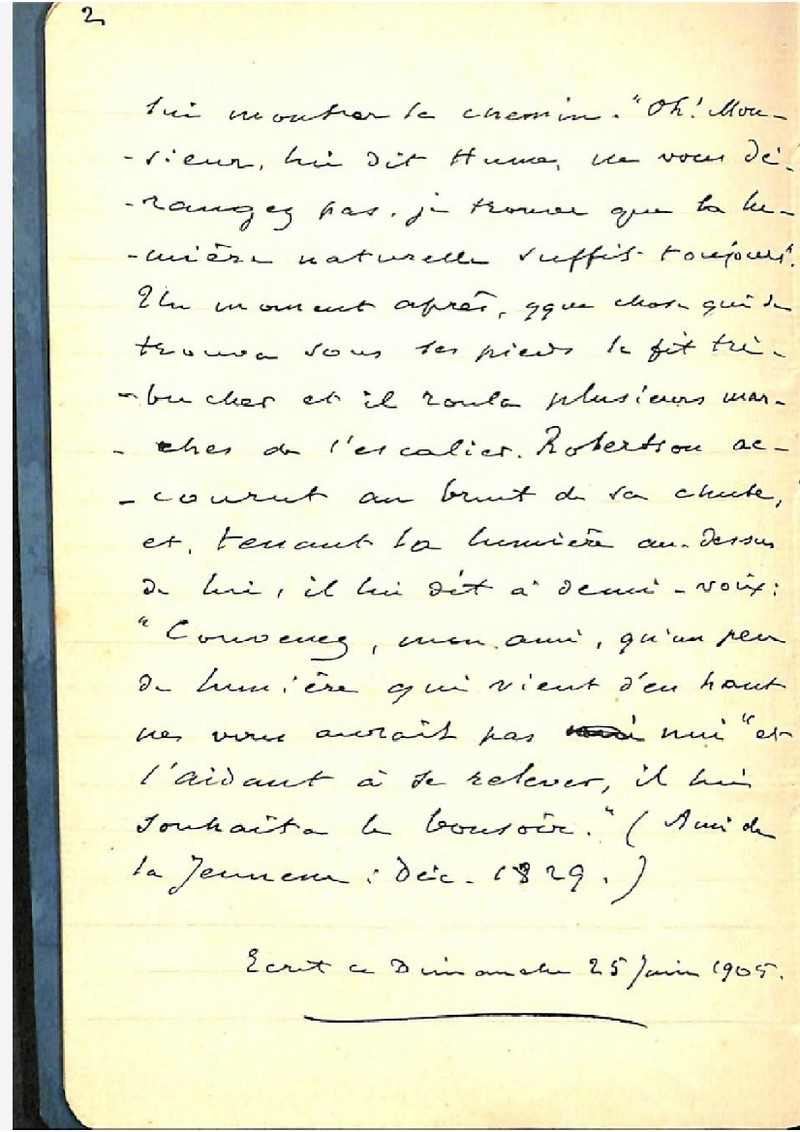 2
lui montrer le chemin. "Oh! Mon-
-sieur, lui dit Hume, ne vous dé-
-rangez pas, je trouve que la lu-
-mière naturelle suffit toujours".
Un moment après, qque chose qui se
trouva sous ses pieds le fit tré-
-bucher et il roula plusieurs mar-
-ches de l'escalier. Robertson ac-
-courut au bruit de sa chute,
et, tenant la lumière au-dessus
de lui, il lui dit à demi-voix:
"Convenez, mon ami, qu'un peu
de lumière qui vient d'en haut
ne vous aurait pas nui" et
l'aidant à se relever, il lui
souhaita le bonsoir." (Ami de
la Jeunesse: Déc. 1829.)
Ecrit ce Dimanche 25 Juin 1905.